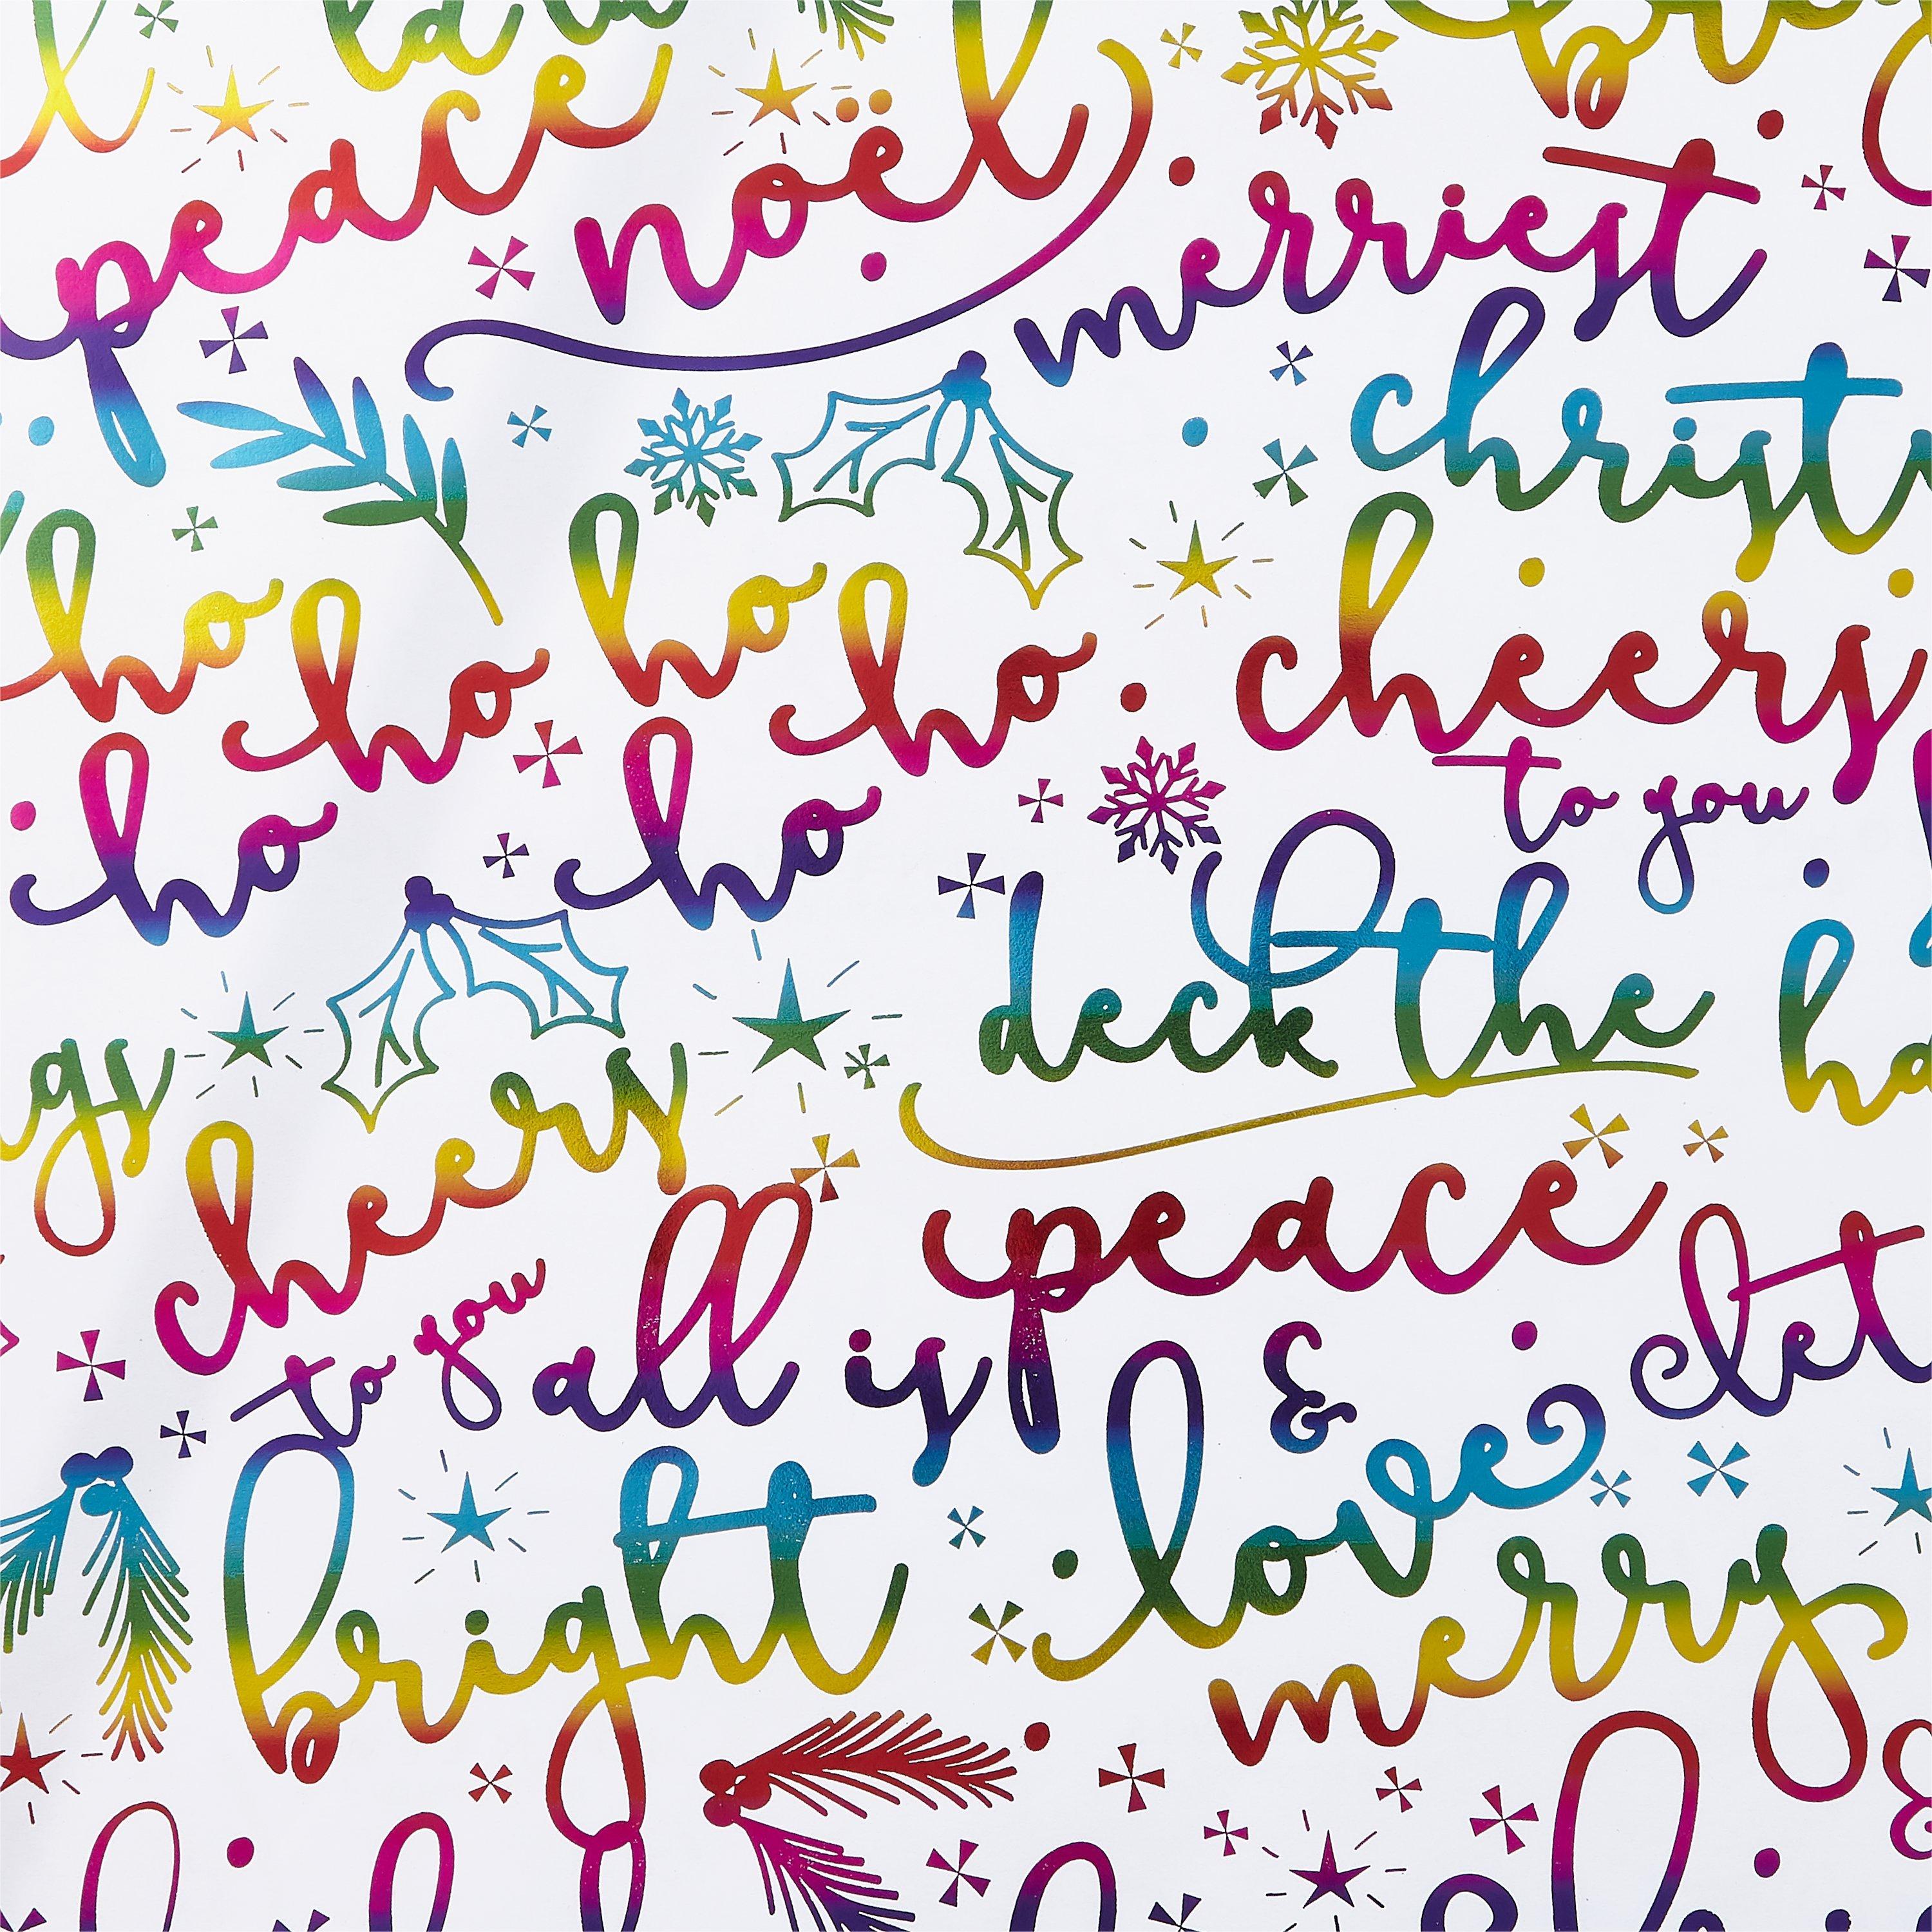 peace
noël
merriest
christ
ho ho
ho ho
cheers
to you
ho
ho
deck the
cheers
to you
all is
peace
&
let
love
bright
merry